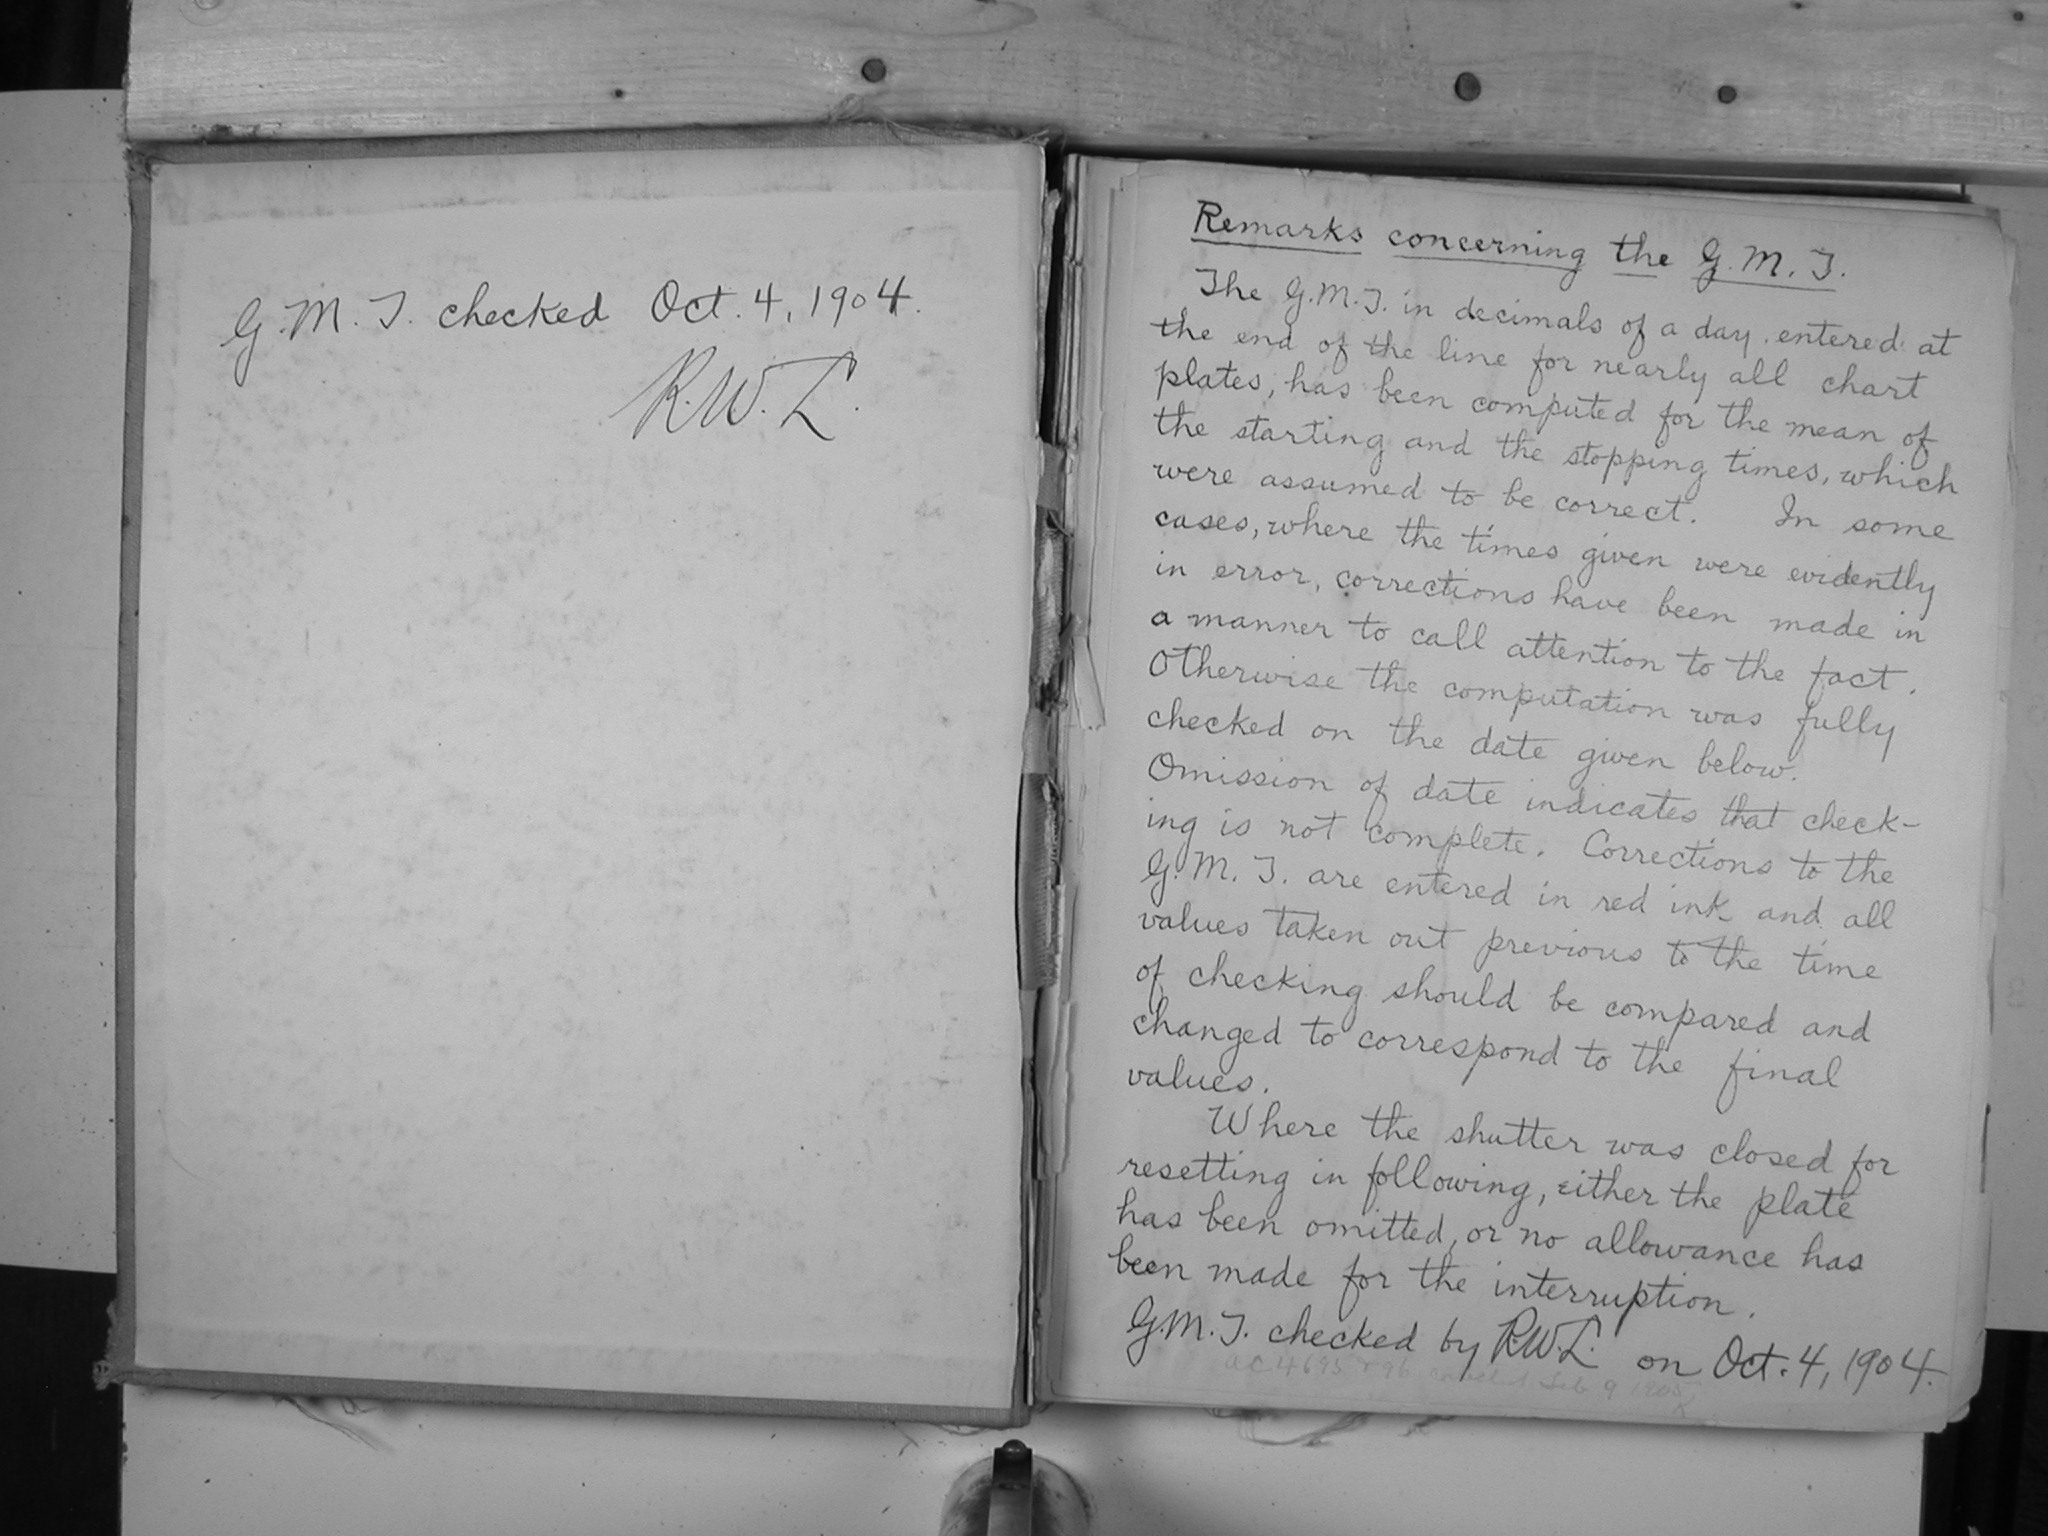 G. M. T. checked Oct. 4, 1904.
R. W. L.
Remarks concerning the G. M. T.
The G. M. T. in decimals of a day, entered at
the end of the line for nearly all chart
plates, has been computed for the mean of
the starting and the stopping times, which
were assumed to be correct. In some
cases, where the times given were evidently
in error, corrections have been made in
a manner to call attention to the fact.
Otherwise the computation was fully
checked on the date given below.
Omission of date indicates that check-
ing is not complete. Corrections to the
G. M. T. are entered in red ink and all
values taken out previous to the time
of checking should be compared and
changed to correspond to the final
values.
Where the shutter was closed for
resetting in following, either the plate
has been omitted, or no allowance has
been made for the interruption.
G. M. T. checked by R.W.L. on Oct. 4, 1904.
AC 4695 + 96 Feb 9 1905